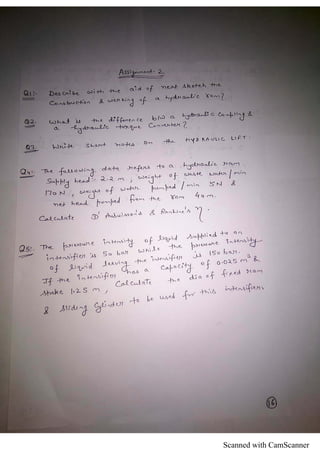 Assignment-2
Q1:- Describe with the aid of neat sketch the
Construction & working of a hydraulic ram?
Q2. What is the difference b/w a hydraulic Coupling &
a hydraulic torque Converter?
Q3. Write short notes on the HYDRAULIC LIFT.
Q4:- The following data refers to a hydraulic ram.
Supply head:- 2.2 m, weight of waste water/min
170 N, weight of water pumped/min 5N &
net head pumped from the ram 40 m.
Calculate D'Aubuisson's & Rankine's η.
Q5:- The pressure intensity of liquid supplied to an
intensifier is 50 bar while the pressure intensity
of liquid leaving the intensifier is 150 bar.
If the intensifier has a capacity of 0.025 m³ &
stroke 1.25 m, Calculate the dia of fixed ram
& sliding Cylinder to be used for this intensifier.
16
Scanned with CamScanner